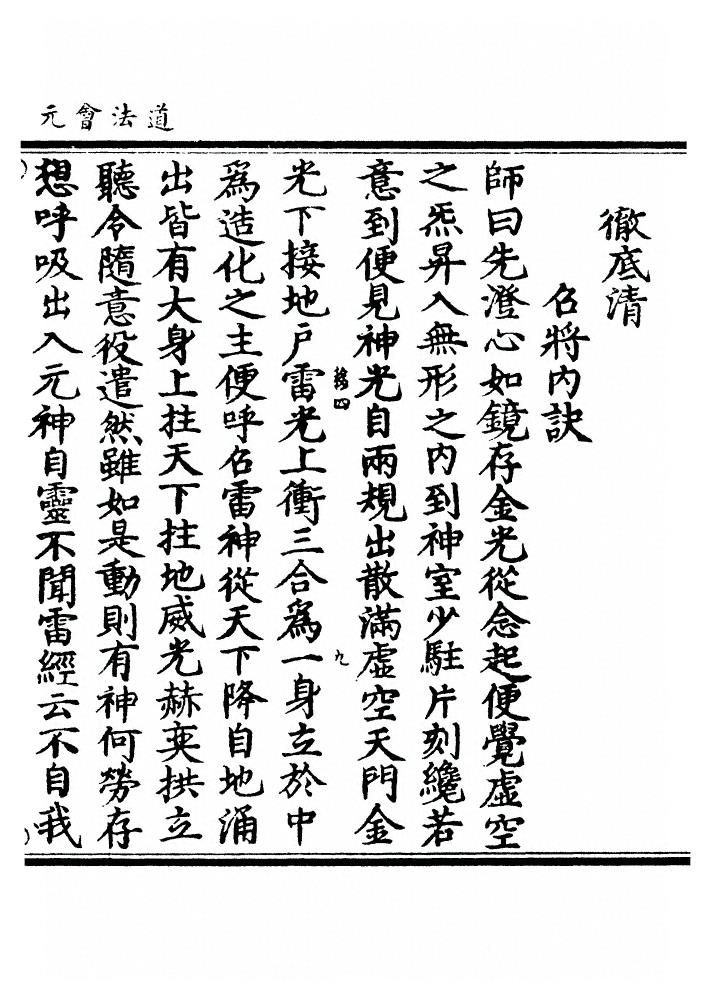 道法會元
徹底清
召將内訣
師曰先澄心如鏡存金光從念起便覺虛空
之炁昇入無形之内到神室少駐片刻纔若
意到便見神光自兩規出散滿虛空天門金
光下接地户雷光上衝三合爲一身立於中
爲造化之主便呼召雷神從天下降自地涌
出皆有大身上拄天下拄地威光赫奕拱立
聽令隨意役遣然雖如是動則有神何勞存
想呼吸出入元神自靈不聞雷經云不自我
四
九